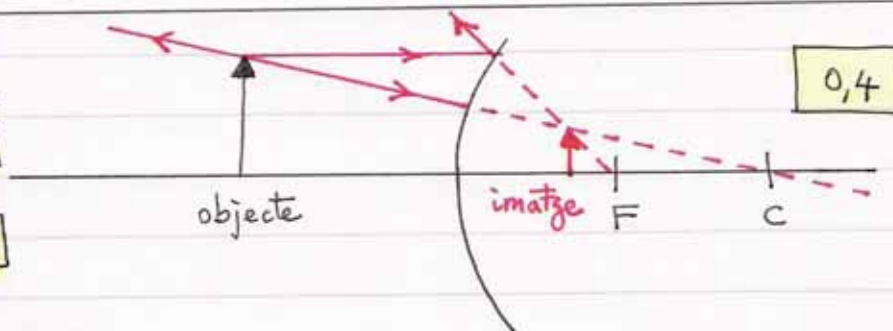 0,4
objecte
imatge
F
C